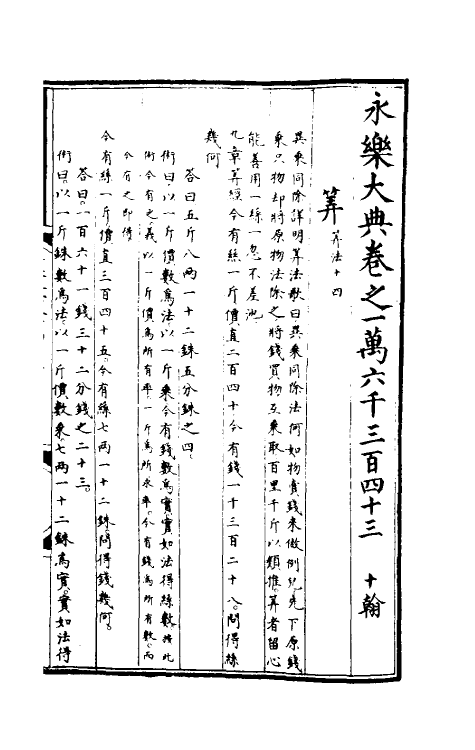 永樂大典卷之一萬六千三百四十三　十翰
筭 筭法十四
異乘同除詳明筭法歌曰異乘同除法何如物賣錢來做例兒先下原錢
乘只物却將原物法除之將錢買物互乘取百里千斤以類推筭者留心
能善用一絲一忽不差池
九章筭經今有絲一斤價直二百四十今有錢一千三百二十八問得絲
幾何
答曰五斤八兩一十二銖五分銖之四
術曰以一斤價數爲法以一斤乘今有錢數爲實實如法得絲數按此
術今有之義以一斤價爲所有率一斤爲所求率今有錢爲所有數而
今有之即得
今有絲一斤價直三百四十五今有絲七兩一十二銖問得錢幾何
答曰一百六十一錢三十二分錢之二十三
術曰以一斤銖數爲法以一斤價數乘七兩一十二銖爲實實如法得